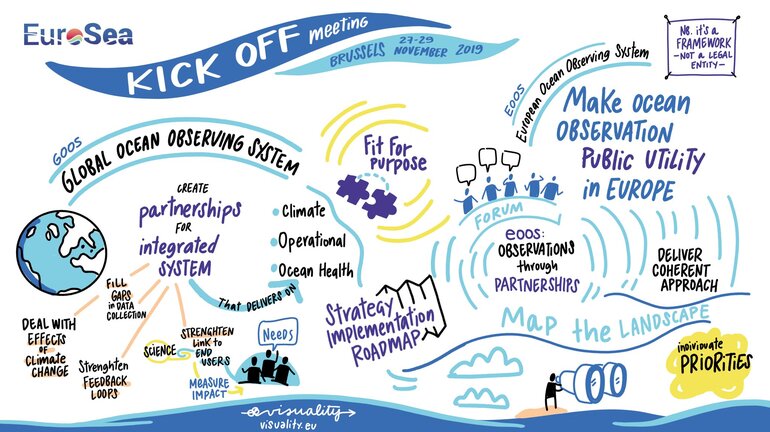 EuroSea
KICK OFF meeting
BRUSSELS 27-29 NOVEMBER 2019
NB. it's a
FRAMEWORK
-NOT A LEGAL
ENTITY-
GOOS
GLOBAL OCEAN OBSERVING SYSTEM
CREATE
partnerships
FOR
integrated
SYSTEM
• Climate
• Operational
• Ocean Health
That DELIVERS ON
FILL
GAPS
in DATA
COLLECTION
DEAL WITH
EFFECTS
OF
Climate
CHANGE
Strenghten
FEEDBACK
LOOPS
SCIENCE
STRENGHTEN
LINK to
END
USERS
MEASURE
IMPACT
NEEDS
Fit For
purpose
Strategy
Implementation
ROADMAP
EOOS
European Ocean Observing System
Make ocean
OBSERVATION
PUBLIC UTILITY
in EUROPE
FORUM
EOOS:
OBSERVATIONS
through
PARTNERSHIPS
DELIVER
COHERENT
APPROACH
Map the LANDSCAPE
individuate
PRIORITIES
visuality
visuality.eu